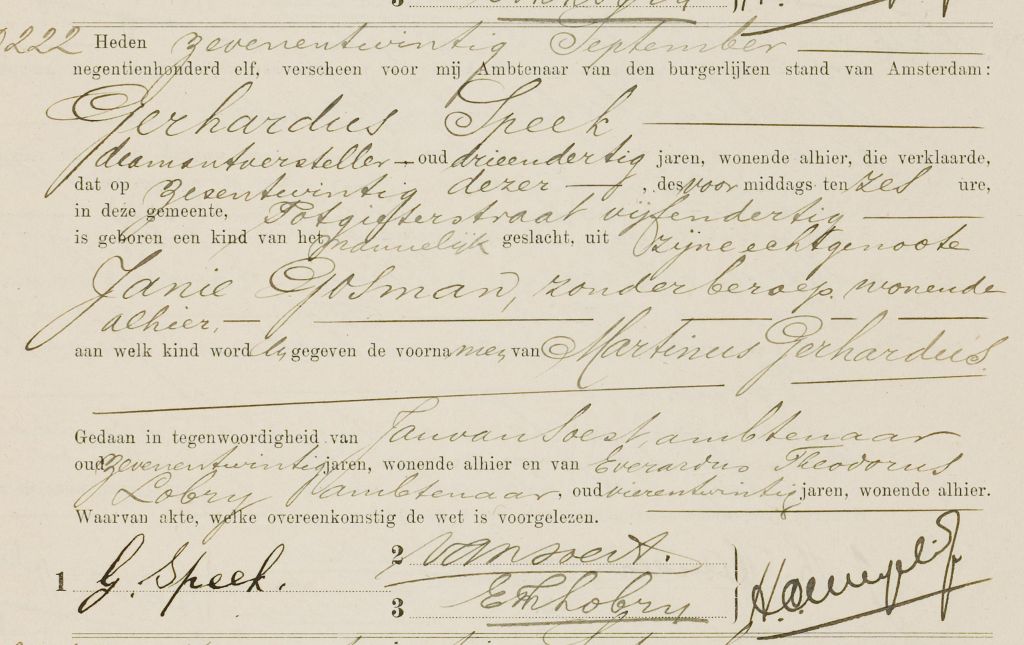 Heden zevenentwintig September
negentienhonderd elf, verscheen voor mij Ambtenaar van den burgerlijken stand van Amsterdam:
Gerhardus Speek
diamantversteller oud drieendertig jaren, wonende alhier, die verklaarde,
dat op zesentwintig dezer, des voor middags ten zes ure,
in deze gemeente, Potgieterstraat vijfendertig
is geboren een kind van het mannelijk geslacht, uit zijne echtgenoote
Janie Gosman, zonder beroep, wonende
alhier,
aan welk kind word en gegeven de voorna men van Martinus Gerhardus.
Gedaan in tegenwoordigheid van Jan van Soest, ambtenaar
oud zevenentwintig jaren, wonende alhier en van Everardus Theodorus
Lobry ambtenaar, oud vierentwintig jaren, wonende alhier.
Waarvan akte, welke overeenkomstig de wet is voorgelezen.
1 G. Speek.
2 van Soest.
3 E Th Lobry